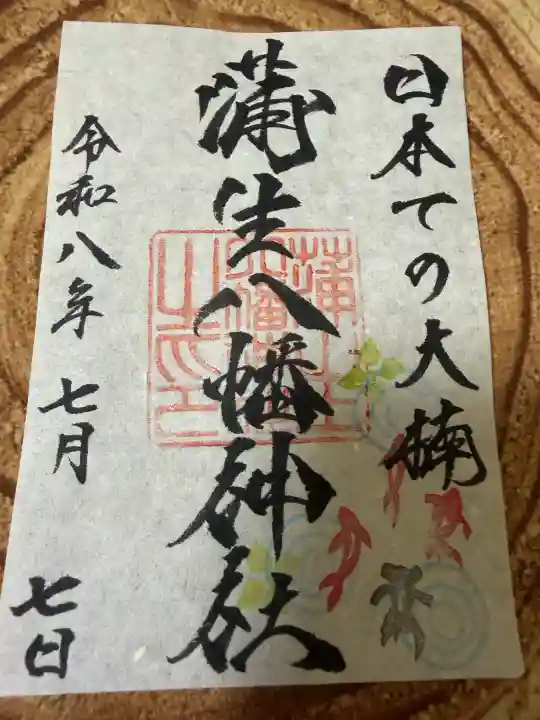 日本一の大楠
蒲生八幡神社
蒲生八幡神社之印
令和八年 七月 七日